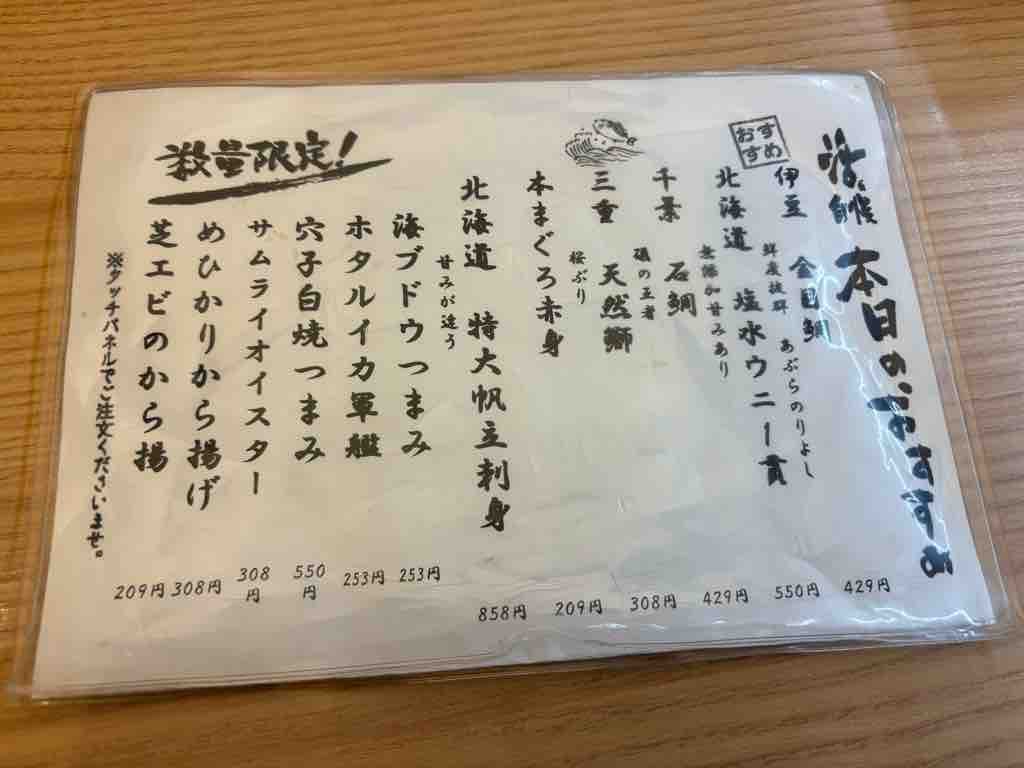 本日のおすすめ
おすすめ
伊豆 金目鯛
鮮度抜群 あぶらのりよし
429円
北海道 塩水ウニ一貫
無添加甘みあり
550円
千葉 石鯛
磯の王者
429円
三重 天然鰤
桜ぶり
308円
本まぐろ赤身
209円
北海道 特大帆立刺身
甘みが違う
858円
数量限定!
海ブドウつまみ
253円
ホタルイカ軍艦
253円
穴子白焼つまみ
550円
サムライオイスター
308円
めひかりから揚げ
308円
芝エビのから揚
209円
※タッチパネルでご注文くださいませ。